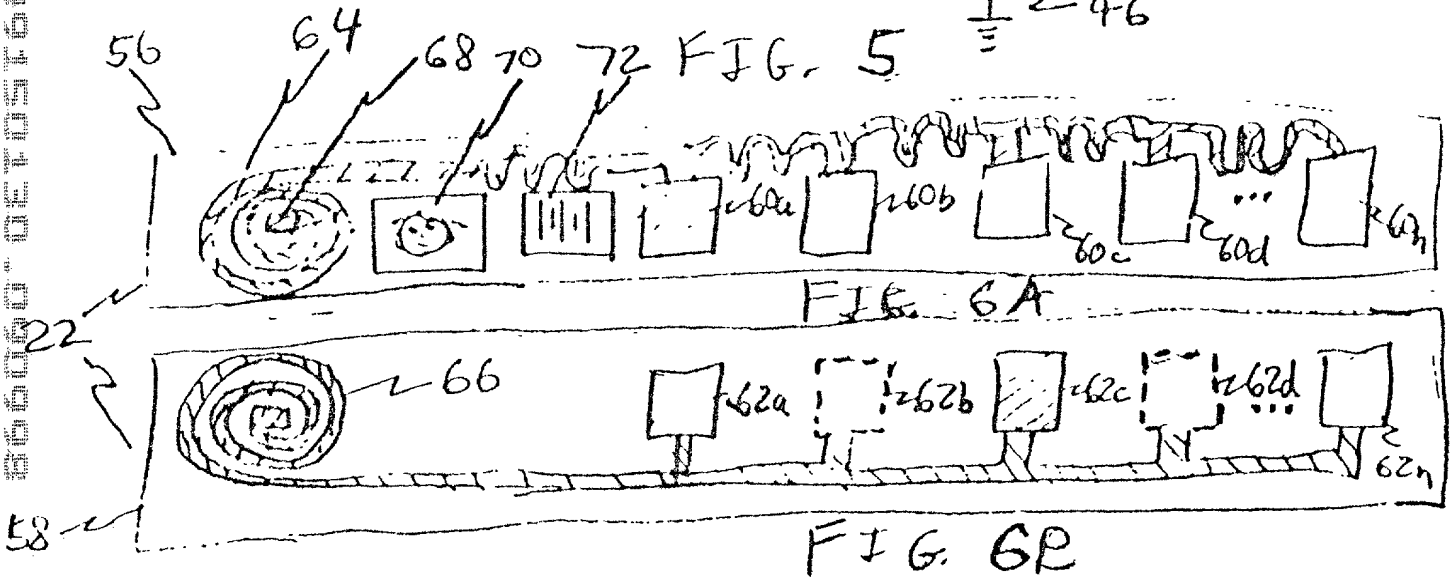 46
56 64 68 70 72 FIG. 5
60a 60b 60c 60d ... 60n
FIG. 6A
22
66 62a 62b 62c 62d ... 62n
58
FIG. 6B